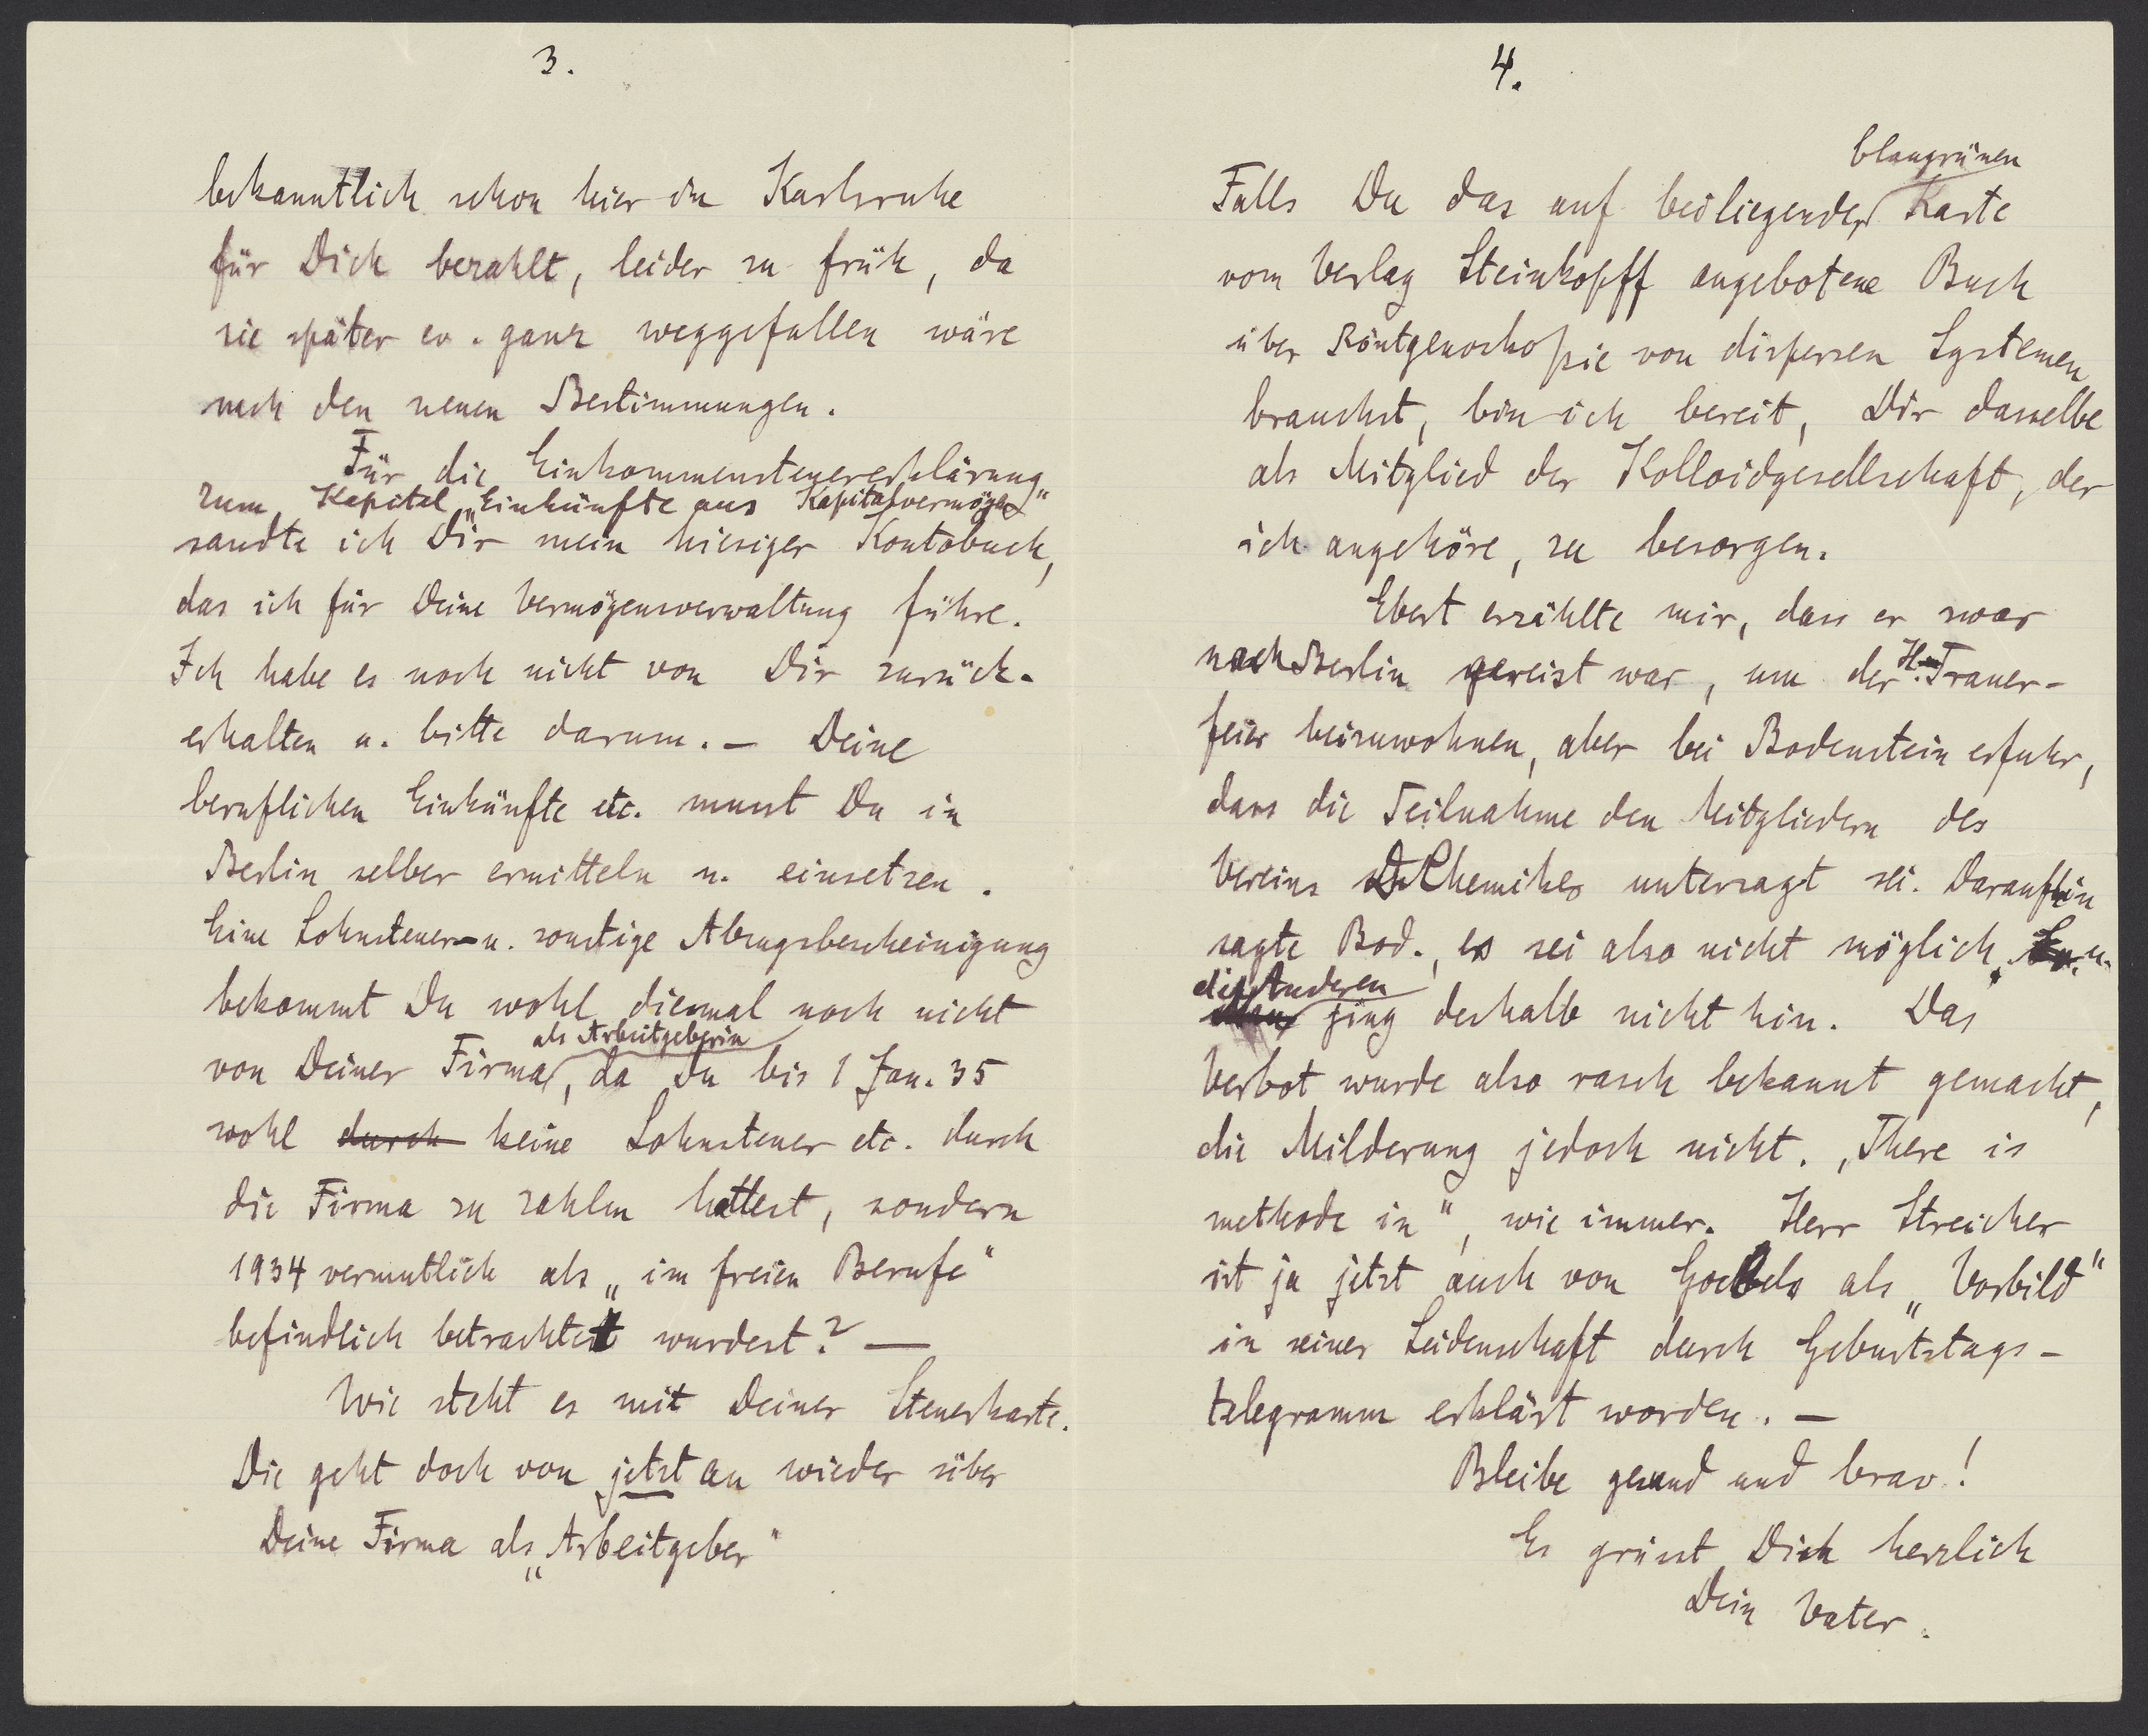 3.
bekanntlich schon hier in Karlsruhe
für Dich bezahlt, leider zu früh, da
sie später ev. ganz weggefallen wäre
nach den neuen Bestimmungen.
Für die Einkommensteuererklärung
zum Kapitel „Einkünfte aus Kapitalvermögen"
sandte ich Dir mein hiesiges Kontobuch,
das ich für Deine Vermögensverwaltung führe.
Ich habe es noch nicht von Dir zurück-
erhalten u. bitte darum. — Deine
beruflichen Einkünfte etc. musst Du in
Berlin selber ermitteln u. einsetzen.
Eine Lohnsteuer- u. sonstige Abzugsbescheinigung
bekommt Du wohl diesmal noch nicht
als Arbeitgeberin
von Deiner Firma, da Du bis 1 Jan. 35
wohl durch keine Lohnsteuer etc. durch
die Firma zu zahlen hattest, sondern
1934 vermutlich als „im freien Berufe"
befindlich betrachtet wurdest? —
Wie steht es mit Deiner Steuerkarte.
Die geht doch von jetzt an wieder über
Deine Firma als „Arbeitgeber"
4.
blaugrünen
Falls Du das auf beiliegender Karte
vom Verlag Steinkopff angebotene Buch
über Röntgenoskopie von dispersen Systemen
brauchst, bin ich bereit, Dir dasselbe
als Mitglied der Kolloidgesellschaft, der
ich angehöre, zu besorgen.
Ebert erzählte mir, dass er zwar
nach Berlin gereist war, um der H. Trauer-
feier beizuwohnen, aber bei Bodenstein erfuhr,
dass die Teilnahme den Mitgliedern des
Vereins D. Chemiker untersagt sei. Daraufhin
sagte Bod., es sei also nicht möglich, u.
die Anderen
ging deshalb nicht hin. Das
Verbot wurde also rasch bekannt gemacht,
die Milderung jedoch nicht. „There is
methode in", wie immer. Herr Streicher
ist ja jetzt auch von Goebbels als „Vorbild"
in seiner Leidenschaft durch Geburtstags-
telegramm erklärt worden. —
Bleibe gesund und brav!
Es grüsst Dich herzlich
Dein Vater.